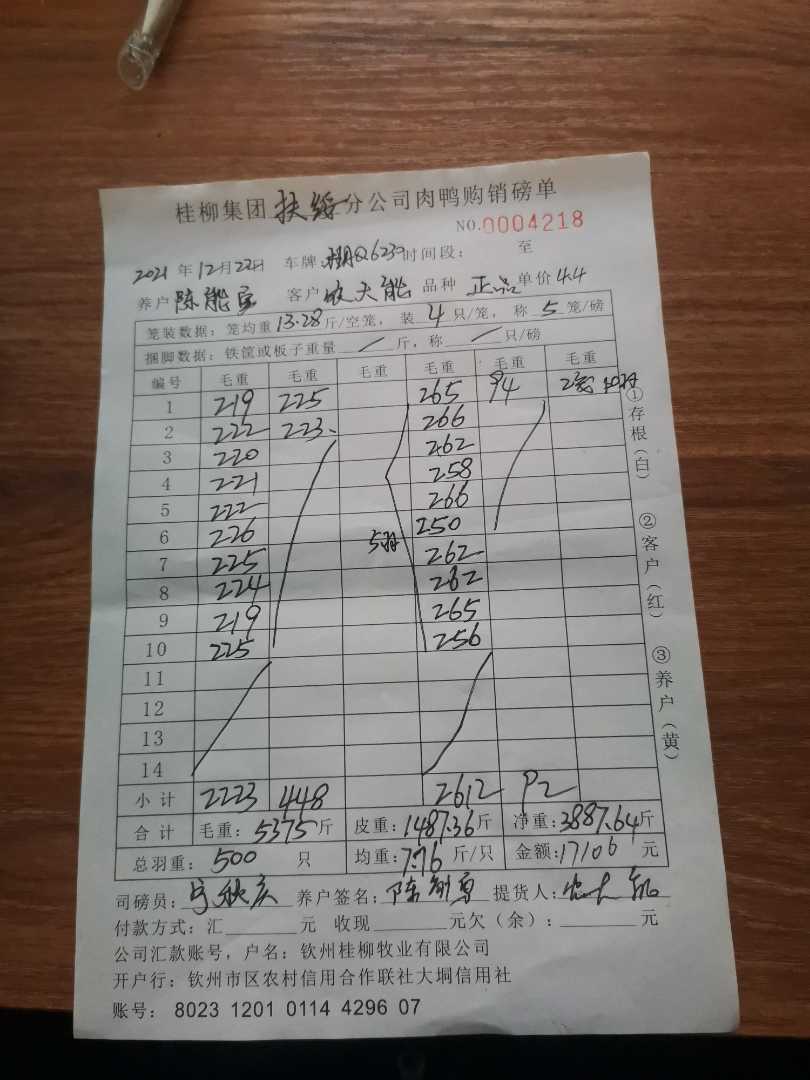 桂柳集团扶绥分公司肉鸭购销磅单
NO.0004218
2021年12月22日 车牌: Q6230 时间段: 至
养户 陈能 客户 农大能 品种 正品 单价 4.4
笼装数据: 笼均重 13.28 斤/空笼, 装 4 只/笼, 称 5 笼/磅
捆脚数据: 铁筐或板子重量 / 斤, 称 / 只/磅
编号 毛重 毛重 毛重 毛重 毛重 毛重
1 219 225 265 94 2笼
2 222 223 266
3 220 262
4 221 258
5 222 266
6 226 250
7 225 5羽 262
8 224 262
9 219 265
10 225 256
11
12
13
14
小计 2223 448 2612 92
合计 毛重: 5375斤 皮重: 1487.36斤 净重: 3887.64斤
总羽重: 500 只 均重: 7.76 斤/只 金额: 17106 元
司磅员: 养户签名: 陈 提货人:
付款方式: 汇 元 收现 元欠(余): 元
公司汇款账号, 户名: 钦州桂柳牧业有限公司
开户行: 钦州市区农村信用合作联社大垌信用社
账号: 8023 1201 0114 4296 07
①存根(白)
②客户(红)
③养户(黄)